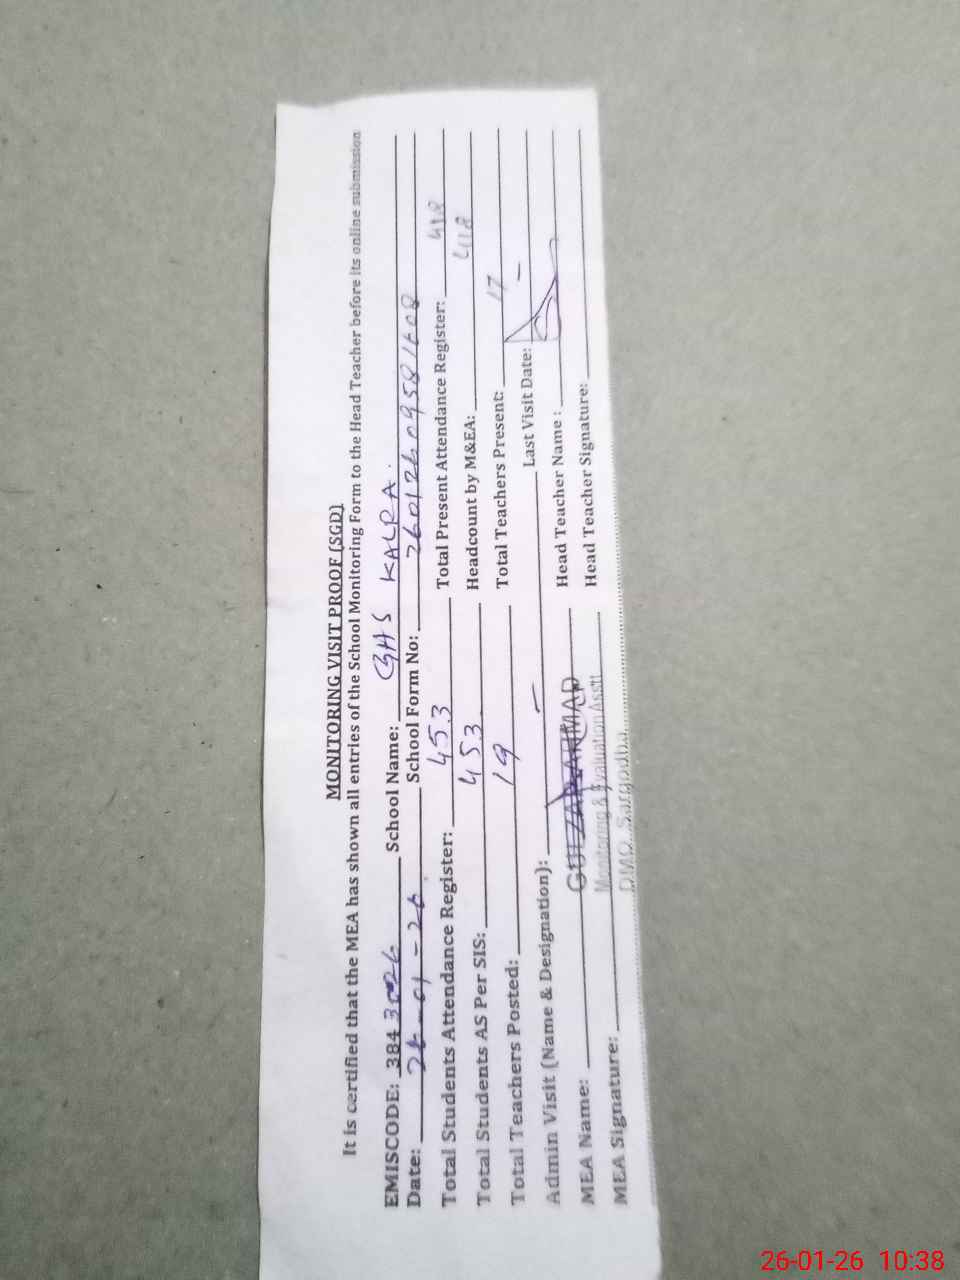 MONITORING VISIT PROOF (SGD)
It is certified that the MEA has shown all entries of the School Monitoring Form to the Head Teacher before its online submission
EMISCODE: 38430026 School Name: GHS KALRA.
Date: 26-01-26 School Form No: 26012609581608
Total Students Attendance Register: 453 Total Present Attendance Register: 418
Total Students AS Per SIS: 453 Headcount by M&EA: 418
Total Teachers Posted: 19 Total Teachers Present: 17
Admin Visit (Name & Designation): — Last Visit Date: —
MEA Name: GULZAR AHMAD Head Teacher Name :
MEA Signature: Monitoring & Evaluation Asstt Head Teacher Signature:
DMO Sargodha.
26-01-26 10:38